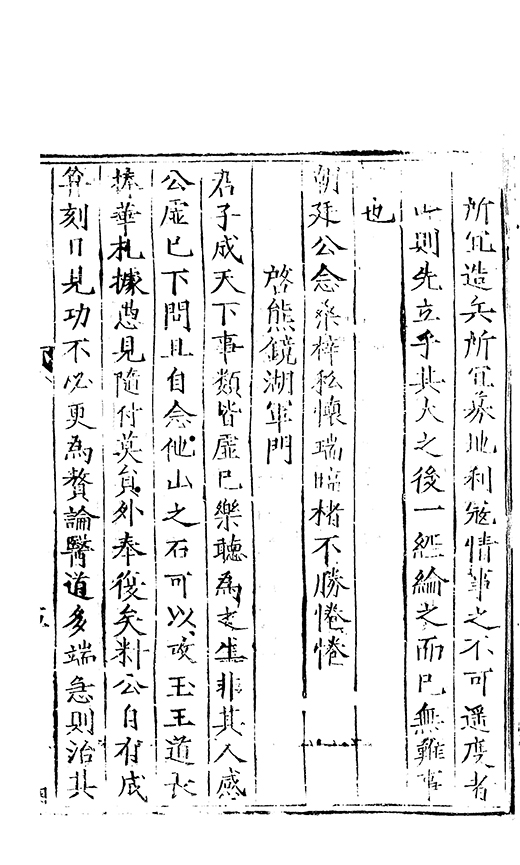 所宜造兵所宜募地利寇情事之不可遥度者
則先立乎其大之後一經綸之而已無難事
也
朝廷公念桑梓私懷瑞臨楮不勝惓惓
啓熊鏡湖軍門
君子成天下事類皆虛已樂聽為生非其人感
公虛已下問且自念他山之石可以攻玉王道長
捧華札據愚見隨付莫負外奉復矣料公自有成
算刻日見功不必更為贅論醫道多端急則治其